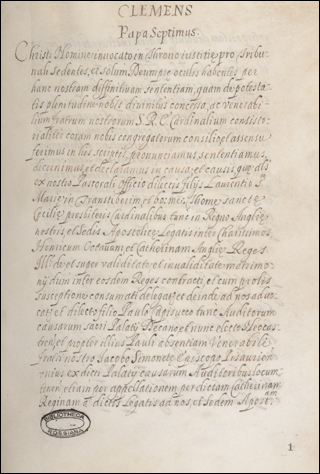 CLEMENS
Papa Septimus.
Christi Nomine invocato in Throno iustitiæ pro tribu-
nali sedentes, et solum Deum præ oculis habentes per
hanc nostram diffinitivam sententiam, quam de potesta-
tis plenitudine nobis divinitus concessa, ac venerabi-
lium fratrum nostrorum S. R. E. Cardinalium consisto-
rialiter coram nobis congregatorum consilio, et assensu
ferimus in his scriptis, pronunciamus, sententiamus,
decernimus, et declaramus in causa, et causis, quæ als
ex nostro Pastorali Officio dilectis filijs Laurentio S.
Mariæ in Transtiberim, et Thomæ sanctæ
Ceciliæ presbiteris Cardinalibus tunc in Regno Angliæ
nostris, et Sedis Apostolicæ Legatis inter Charissimos
Henricum Octavum, et Catherinam Angliæ Reges
Ill. de, et super validitate, et invaliditate matrimo-
nij dum inter eosdem Reges contracti, et cum prolis
susceptione consumati delegatæ, et deinde ad nos advo-
catæ, et dilecto filio Paulo tunc Auditorum
causarum sacri Palatij Decano, et nunc electo
can, et propter illius Pauli absentiam Venerabili
Fratri nostro Jacobo Simonetæ Episcopo Pisauriensi
unius ex dicti Palatij causarum Auditoribus locum-
tenen, etiam per appellationem per dictam Catherinam
Reginam a dictis Legatis ad nos, et Sedem Apostam
BIBLIOTHECA
ROSSIANA
1